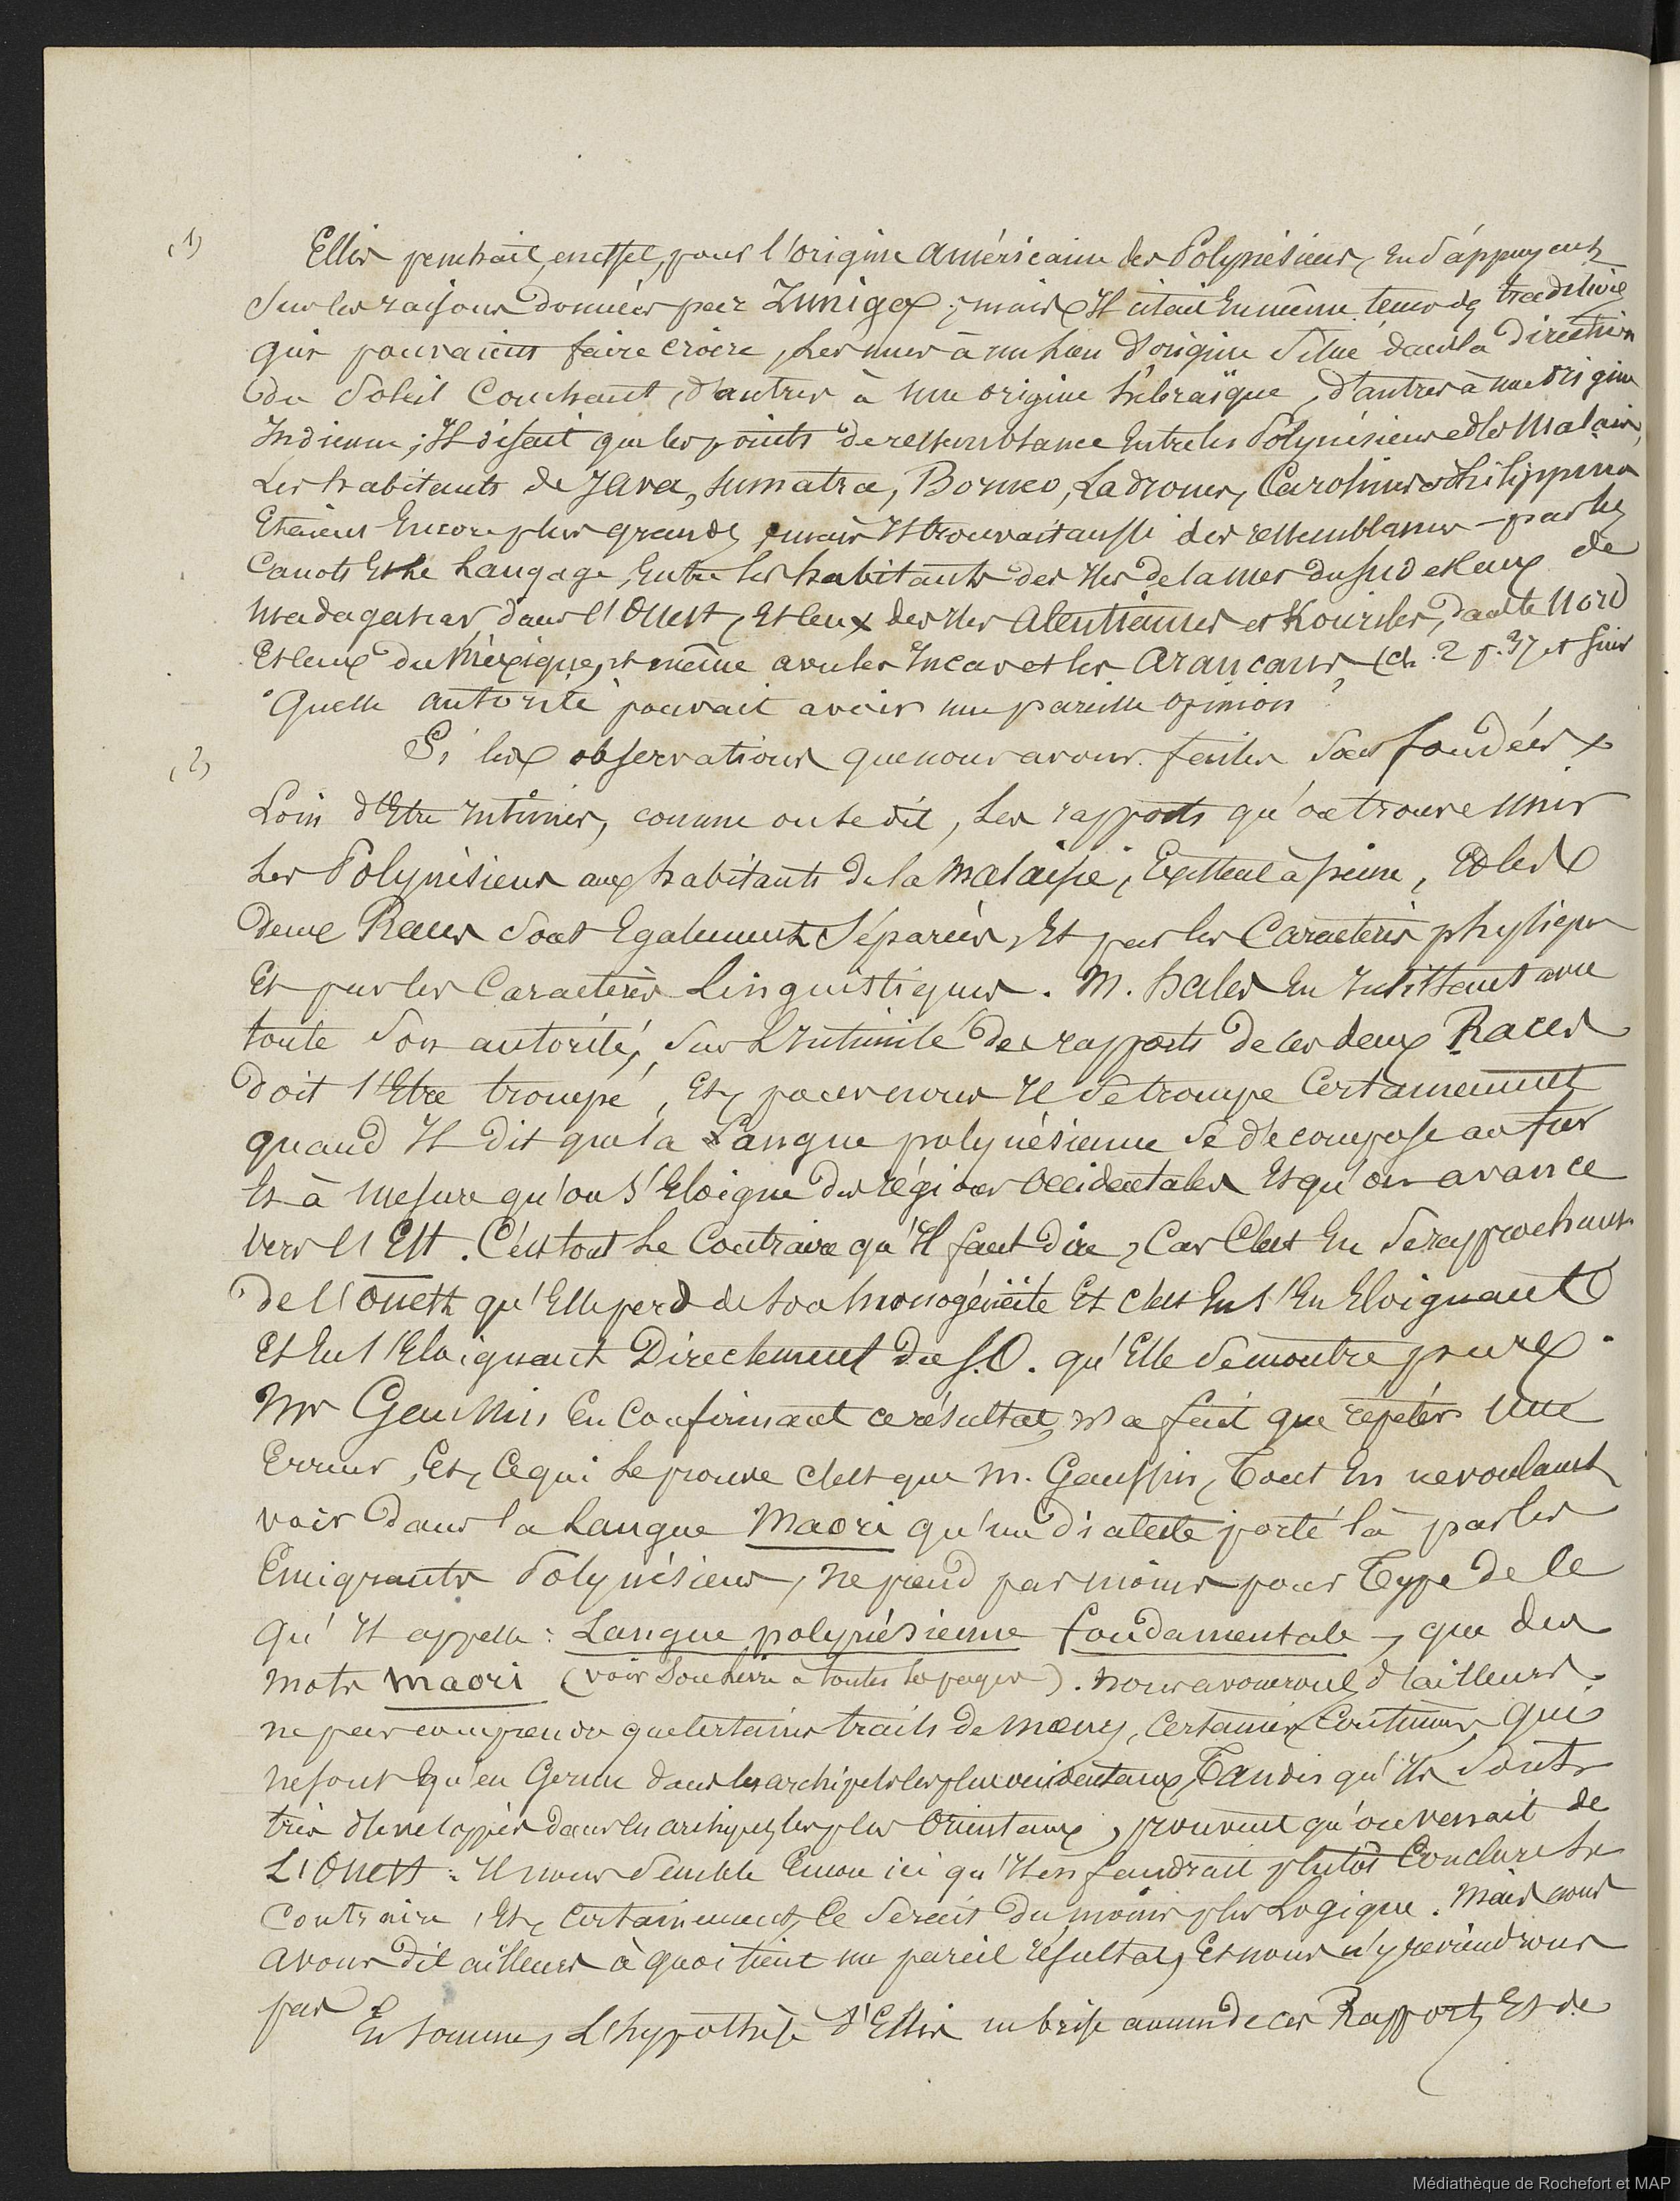 (1) Ellis penchait, en effet, pour l'origine américaine des Polynésiens, En s'appuyant
Sur les raisons données par Zuniga ; mais Il citait En même tems des traditions
qui pouvaient faire croire, les unes à un lieu d'origine Situé dans la direction
du Soleil Couchant, d'autres à une origine hébraïque, d'autres à une origine
Indienne ; Il disait que les points de ressemblance Entre les Polynésiens et les Malais,
Les habitants de Java, Sumatra, Borneo, Ladrones, Carolines et Philippines
Etaient Encore plus grands, mais Il trouvait aussi des ressemblances par les
Canots Et le Langage, Entre les habitants des Iles de la mer du Sud et ceux de
Madagascar dans l'Ouest, Et ceux des Iles Aleutiennes et Kouriles, dans le Nord
Et ceux du Méxique, et même avec les Incas et les Araucans, (ch. 2 p. 37 et Suiv
Quelle autorité pouvait avoir une pareille opinion ?
(2) Si les observations que nous avons faites sont fondées
Loin d'Etre intimes, comme on le dit, Les rapports qu'on trouve unir
Les Polynésiens aux habitants de la Malaisie, Existent à peine, Et les
deux Races sont Egalement Séparées, Et par les Caractères physiques
Et par les Caractères Linguistiques. M. Hales En insistant avec
toute son autorité, sur L'Intimité des rapports de ces deux Races
doit s'Etre trompé, Et, pour nous Il se trompe Certainement
quand Il dit que la Langue polynésienne se décompose au fur
Et à mesure qu'on S'Eloigne des régions Occidentales Et qu'on avance
vers l'Est. C'est tout Le Contraire qu'Il faut dire, Car C'est En Se rapprochant
de l'Ouest qu'Elle perd de son homogénéité Et c'est En s'En Eloignant
Et En s'Eloignant Directement du S.O. qu'Elle se montre pure.
Mr Gaussin En Confirmant ce résultat, n'a fait que répéter une
Erreur, Et, Ce qui Le prouve C'est que M. Gaussin, Tout En ne voulant
voir dans la Langue Maori qu'un dialecte porté là par les
Emigrants Polynésiens, ne prend pas moins pour Type de ce
qu'Il appelle : Langue polynésienne fondamentale, que des
mots maori (voir son livre à toutes les pages). Nous avouerons d'ailleurs
ne pas comprendre que Certains traits de mœurs, Certaines Coutumes qui
ne sont qu'en Germe dans les archipels les plus occidentaux, Tandis qu'Ils sont
très développés dans les archipels les plus Orientaux, prouvent qu'on venait de
L'Ouest : Il nous semble Encore ici qu'Il en faudrait plutôt Conclure le
Contraire, Et, Certainement, Ce serait du moins plus Logique. Mais nous
avons dit ailleurs à quoi tient un pareil résultat, Et nous n'y reviendrons
pas
En somme, L'hypothèse d'Ellis ne brise aucun de ces Rapports Et de
Médiathèque de Rochefort et MAP